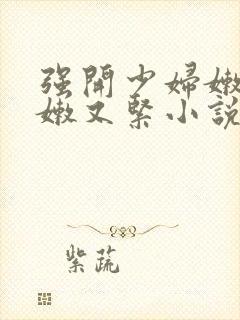 强開少婦嫩
嫩又緊小說
紫蔬